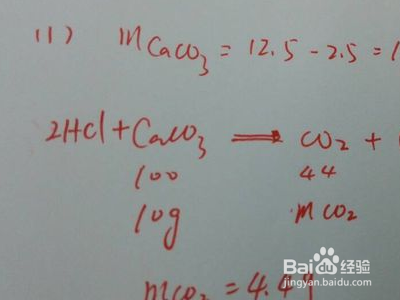 (1) mCaCO₃ = 12.5 - 2.5 = 1
2HCl + CaCO₃ → CO₂ +
100 44
10g mCO₂
mCO₂ = 4.4g
Baidu经验
jingyan.baidu.com